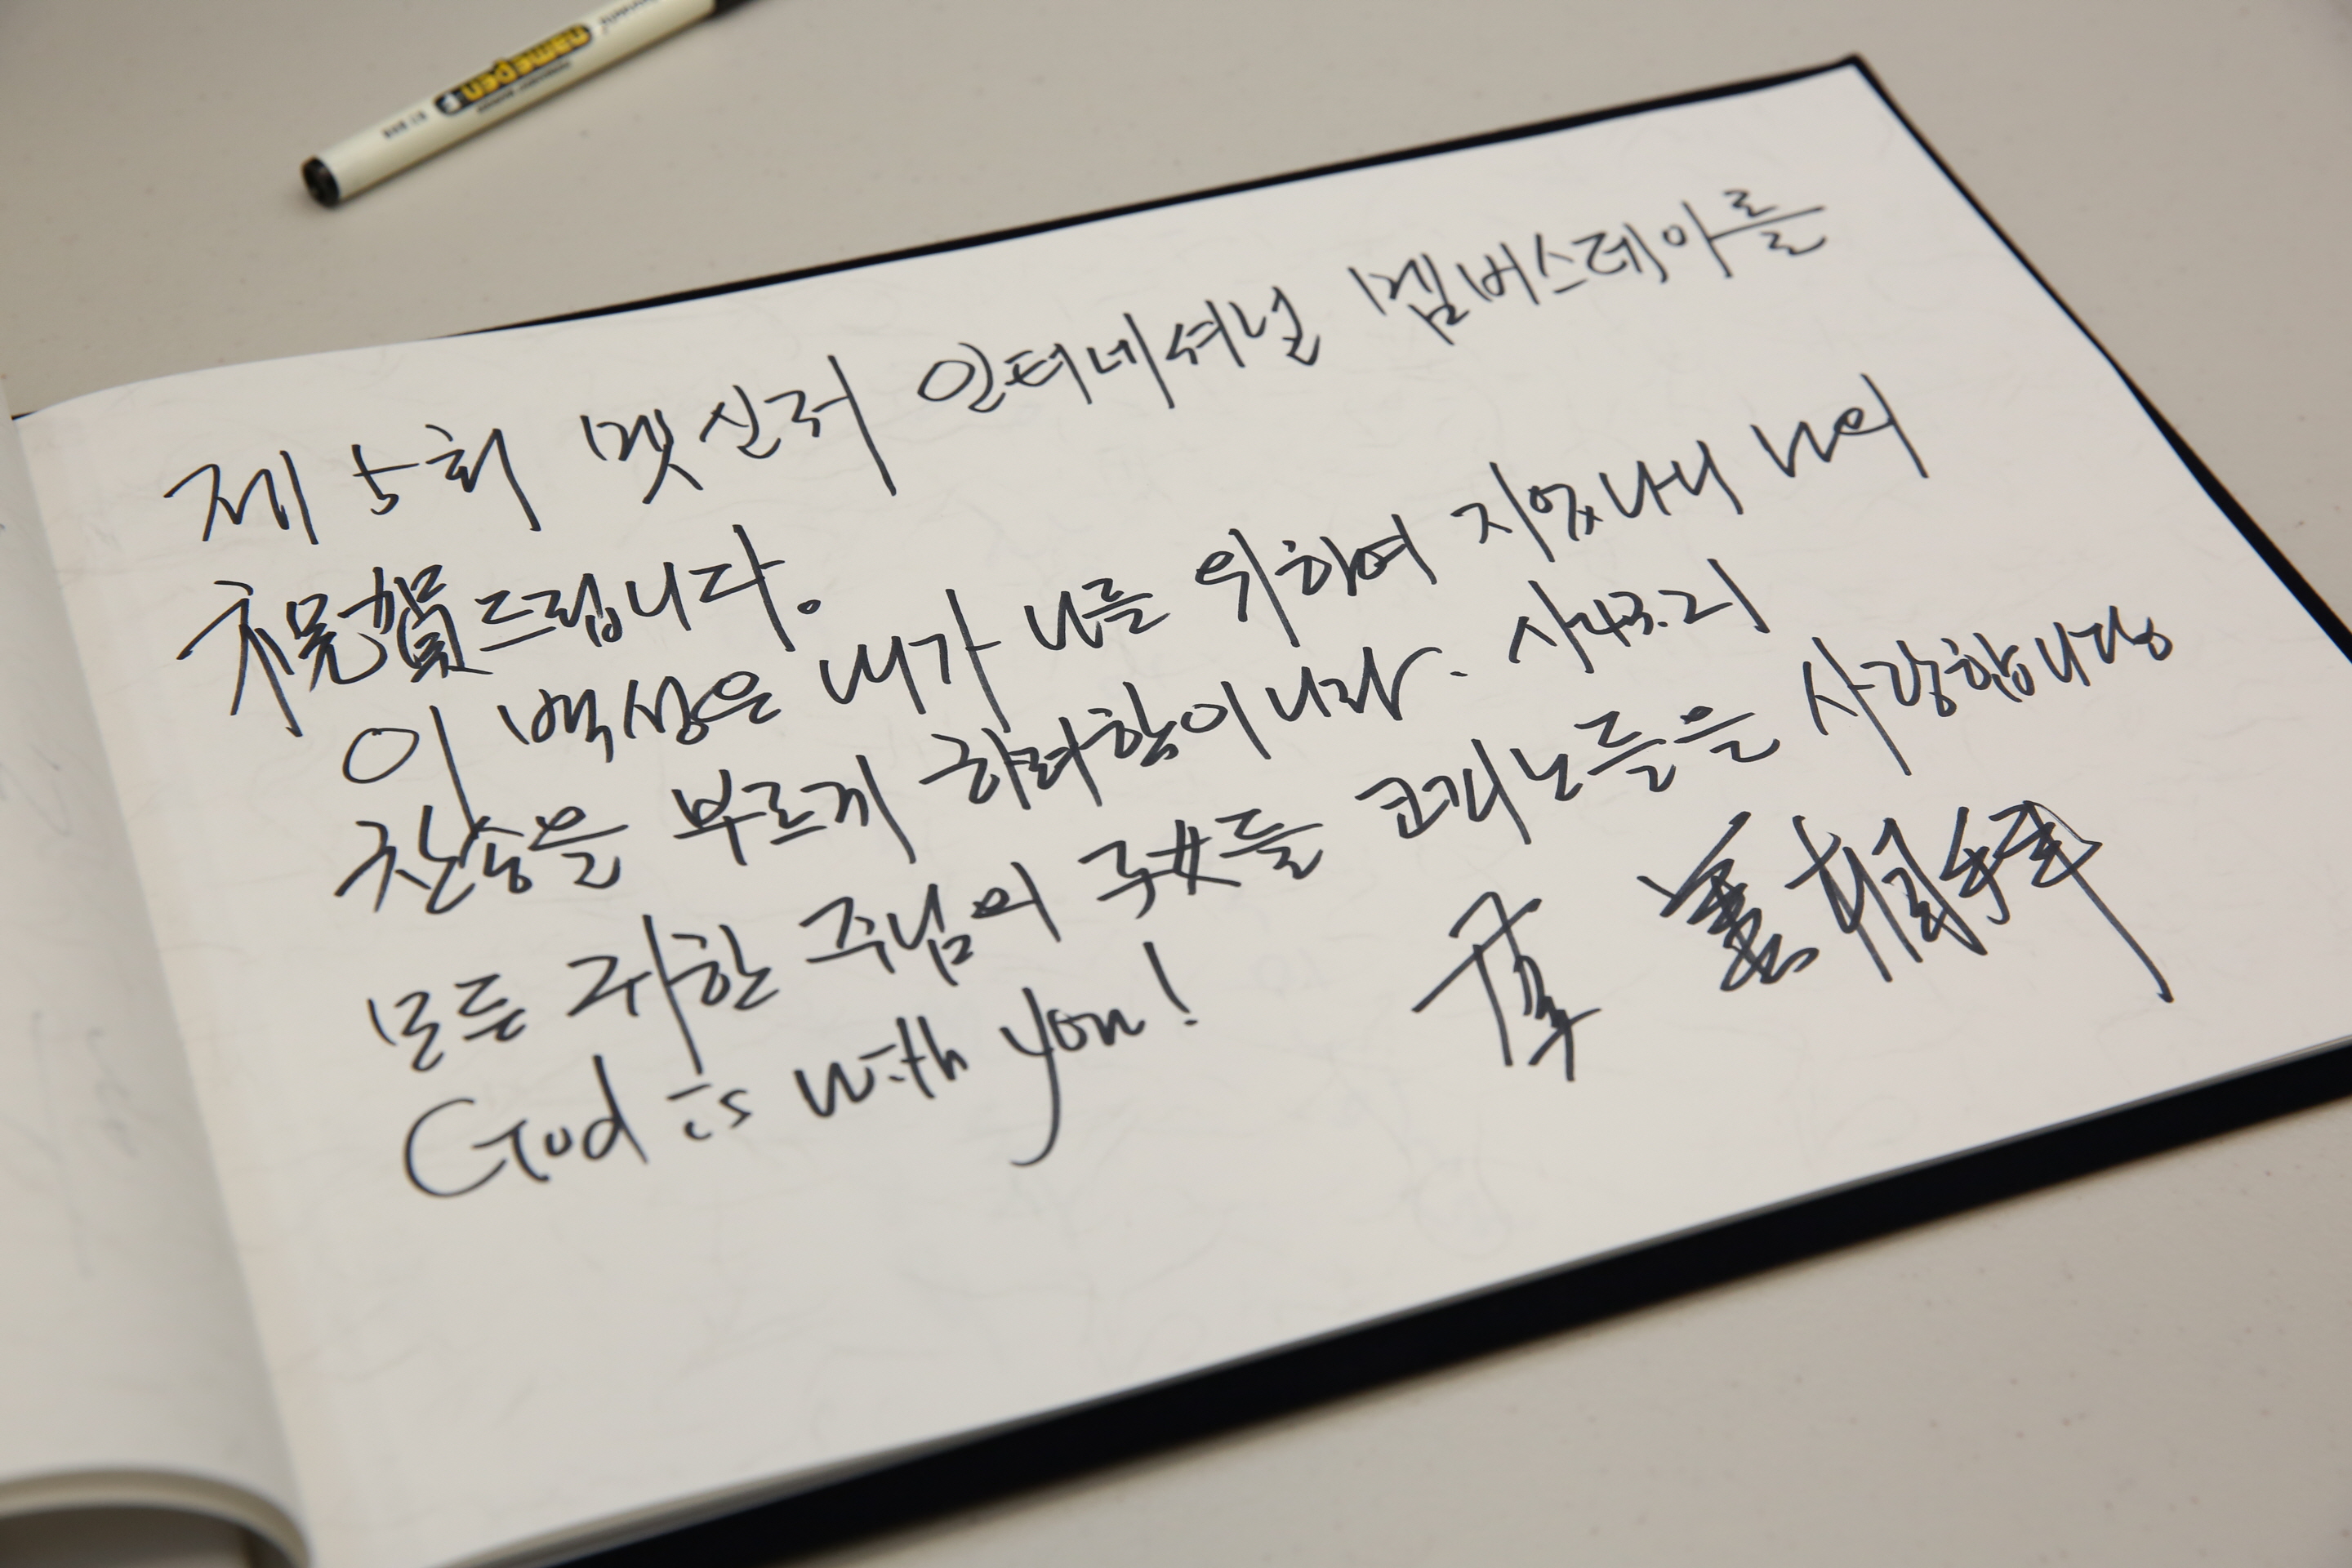 namepen
제 5회 멧신저 인터네셔널 멤버스데이를
祝賀드립니다.
이 백성은 내가 나를 위하여 지었나니 나의
찬송을 부르게 하려함이니라. 사43.21
모든 귀한 주님의 子女들 코피노들을 사랑합니당
God is with you!